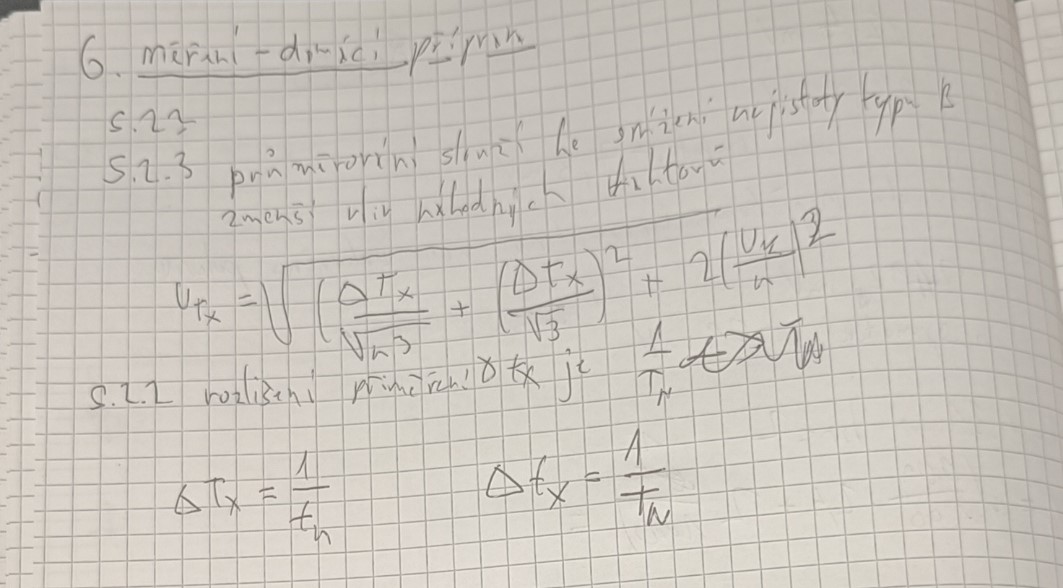 6. měření - domácí příprava
5.2?
5.2.3 průměrování slouží ke snížení nejistoty typu B
zmenší vliv náhodných faktorů
u_Tx = √( (ΔTx/√n3 + (Δtx/√3)² + 2(Uk/n)²
5.2.2 rozlišení při měření tx je 1/TN
ΔTx = 1/tn Δtx = 1/TN